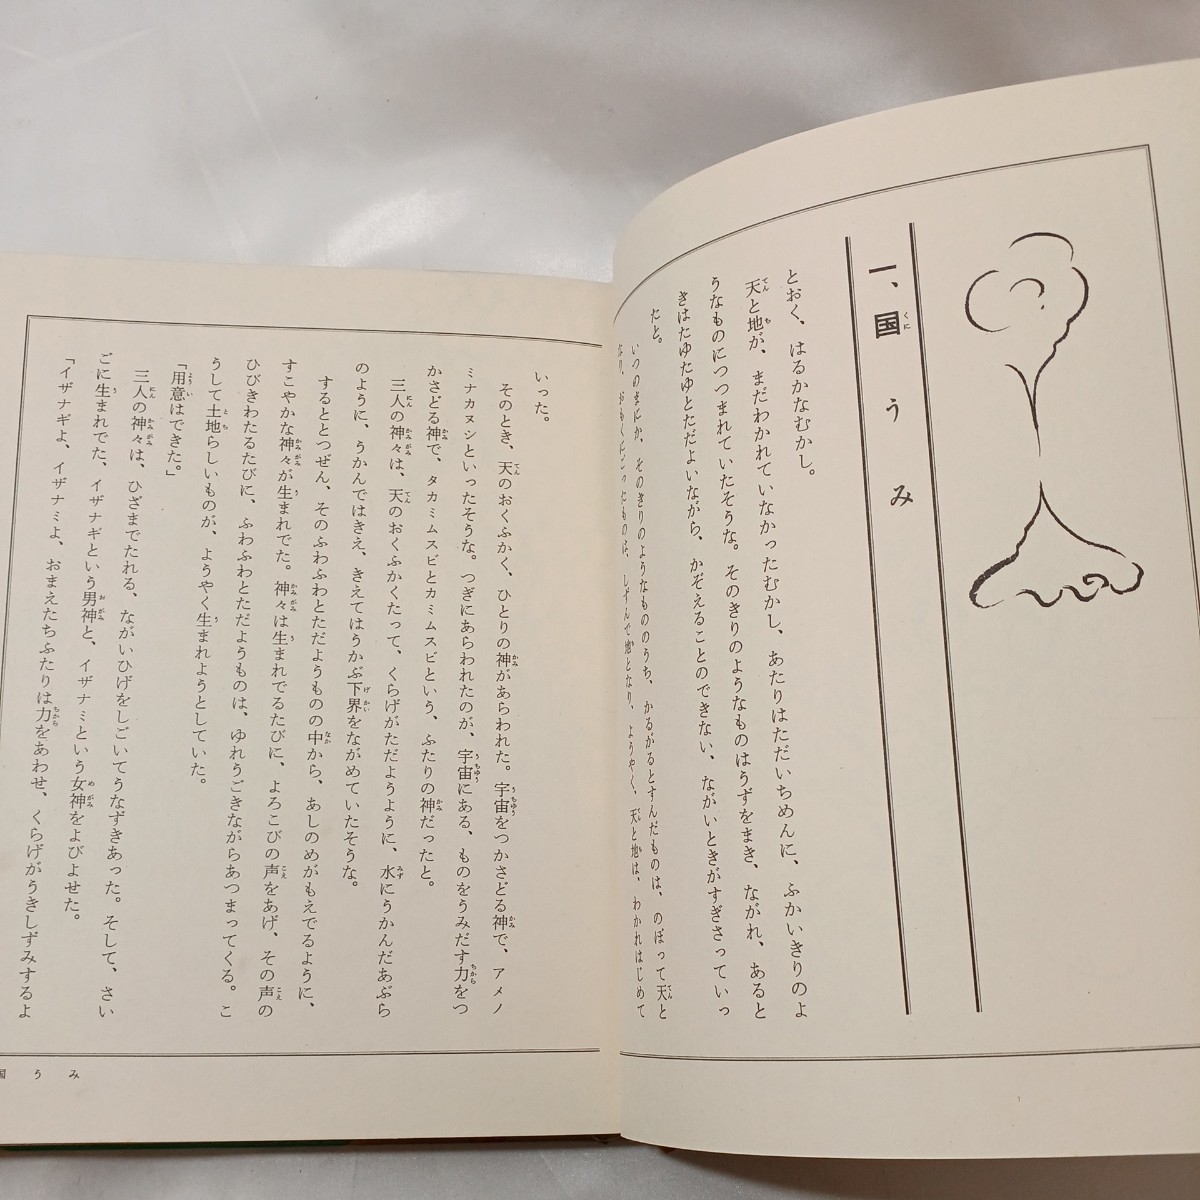 一、国うみ
とおく、はるかなむかし。
天と地が、まだわかれていなかったむかし、あたりはただいちめんに、ふかいきりのよ
うなものにつつまれていたそうな。そのきりのようなものはうずをまき、ながれ、あると
きはたゆたゆとただよいながら、かぞえることのできない、ながいときがすぎさっていっ
たと。
いつのまにか、そのきりのようなもののうち、かるがるとすんだものは、のぼって天と
なり、おもくにごったものは、しずんで地となり、ようやく、天と地は、わかれはじめて
いった。
そのとき、天のおくふかく、ひとりの神があらわれた。宇宙をつかさどる神で、アメノ
ミナカヌシといったそうな。つぎにあらわれたのが、宇宙にある、ものをうみだす力をつ
かさどる神で、タカミムスビとカミムスビという、ふたりの神だったと。
三人の神々は、天のおくふかくたって、くらげがただようように、水にうかんだあぶら
のように、うかんではきえ、きえてはうかぶ下界をながめていたそうな。
するととつぜん、そのふわふわとただようものの中から、あしのめがもえでるように、
すこやかな神々が生まれでた。神々は生まれでるたびに、よろこびの声をあげ、その声の
ひびきわたるたびに、ふわふわとただようものは、ゆれうごきながらあつまってくる。こ
うして土地らしいものが、ようやく生まれようとしていた。
「用意はできた。」
三人の神々は、ひざまでたれる、ながいひげをしごいてうなずきあった。そして、さい
ごに生まれでた、イザナギという男神と、イザナミという女神をよびよせた。
「イザナギよ、イザナミよ、おまえたちふたりは力をあわせ、くらげがうきしずみするよ
国うみ